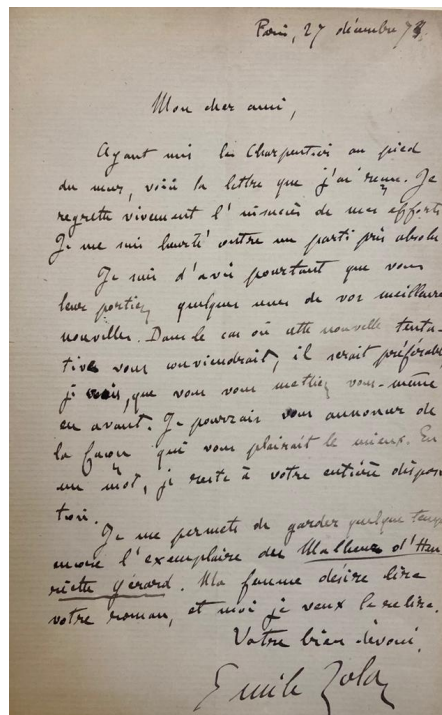 Paris, 27 décembre 78
Mon cher ami,
Ayant mis les Charpentier au pied
du mur, voici la lettre que j'ai reçue. Je
regrette vivement l'insuccès de mes efforts
Je me suis heurté contre un parti pris absolu
Je suis d'avis pourtant que vous
leur portiez quelques unes de vos meilleures
nouvelles. Dans le cas où cette nouvelle tenta-
tive vous conviendrait, il serait préférable,
je crois, que vous vous mettiez vous-même
en avant. Je pourrais vous annoncer de
la façon qui vous plairait le mieux. En
un mot, je reste à votre entière disposi
tion.
Je me permets de garder quelque temps
encore l'exemplaire des Malheurs d'Hen
riette Gérard. Ma femme désire lire
votre roman, et moi je veux le relire.
Votre bien dévoué,
Emile Zola